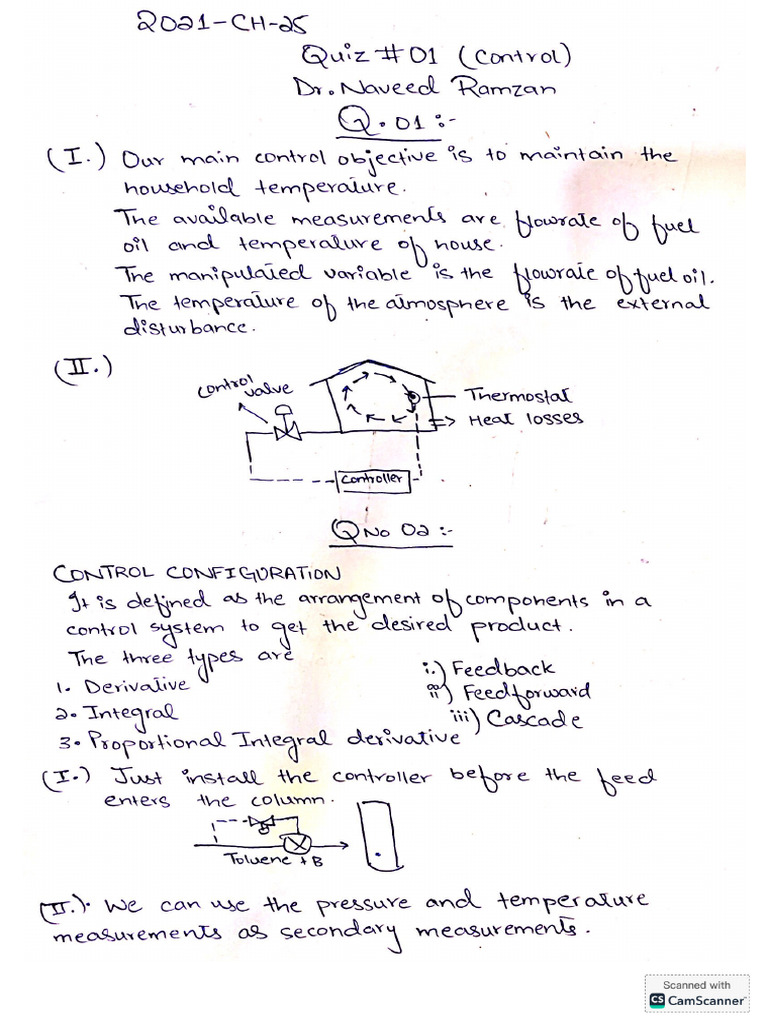 2021-CH-25
Quiz # 01 (Control)
Dr. Naveed Ramzan
Q.01:-
(I.) Our main control objective is to maintain the
household temperature.
The available measurements are flowrate of fuel
oil and temperature of house.
The manipulated variable is the flowrate of fuel oil.
The temperature of the atmosphere is the external
disturbance.
(II.)
control valve
Thermostat
Heat losses
Controller
QNo 02:-
CONTROL CONFIGURATION
It is defined as the arrangement of components in a
control system to get the desired product.
The three types are
1. Derivative
2. Integral
3. Proportional Integral derivative
i.) Feedback
ii) Feedforward
iii) Cascade
(I.) Just install the controller before the feed
enters the column.
Toluene + B
(II.). We can use the pressure and temperature
measurements as secondary measurements.
Scanned with
CS CamScanner